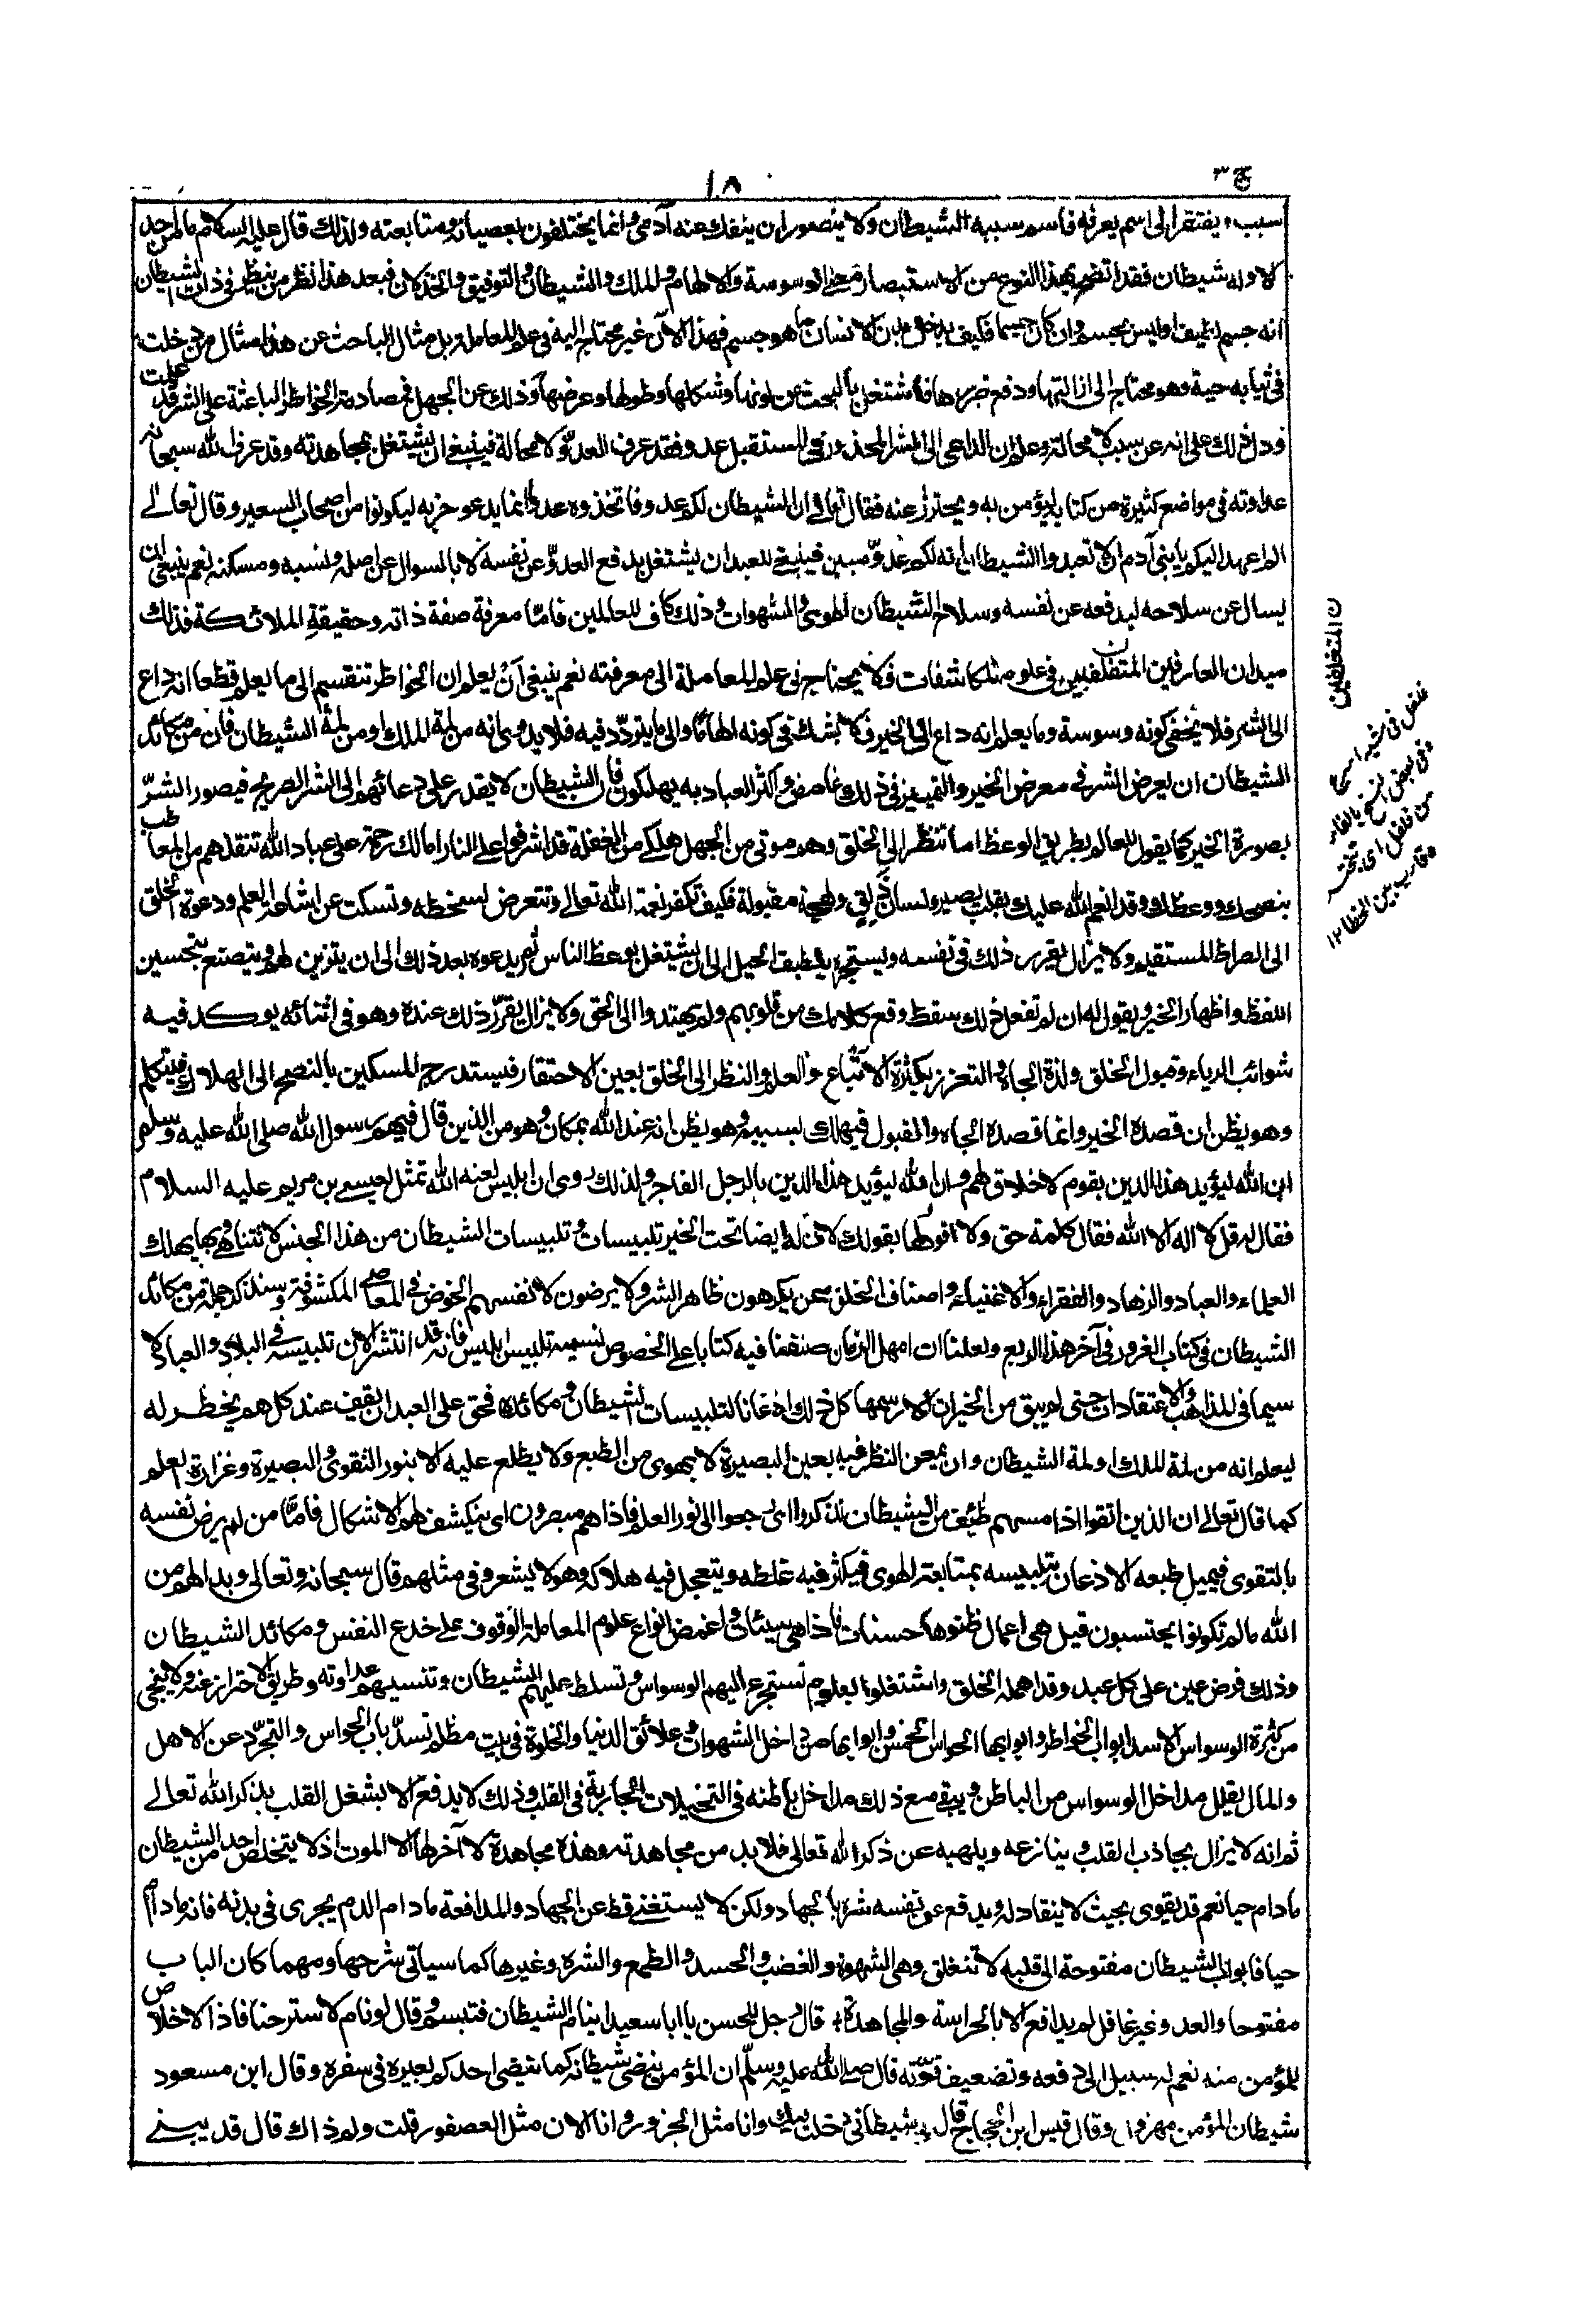 ج ٣
١٠٨
سببه يفتقر الى اسم يعرفه فاسم سببه الشيطان ولا يتصور ان ينفك عنه آدمى وانما يختلفون بعصيانه ومتابعته ولذلك قال عليه السلام ما من احد
الا وله شيطان فقد اتضح بهذا النوع من الاستبصار معنى الوسوسة والالهام والملك والشيطان والتوفيق والخذلان فبعد هذا نظر من ينظر فى ذات الشيطان
انه جسم لطيف او ليس بجسم وان كان جسما فكيف يدخل بدن الانسان ما هو جسم فهذا الآن غير محتاج اليه فى علم المعاملة بل مثال الباحث عن هذا مثال من دخلت
فى ثيابه حية وهو محتاج الى ازالتها ودفع ضررها فاشتغل بالبحث عن لونها وشكلها وطولها وعرضها وذلك عن الجهل فمصادمة الخواطر الباعثة على الشر قد علمت
ودل ذلك على انه عن سبب لا محالة وعلم ان الداعى الى الشر المحذور فى المستقبل عدو فقد عرف العدو لا محالة فينبغى ان يشتغل بمجاهدته وقد عرف الله سبحانه
عداوته فى مواضع كثيرة من كتابه ليؤمن به ويحترز عنه فقال تعالى ان الشيطان لكم عدو فاتخذوه عدوا انما يدعو حزبه ليكونوا من اصحاب السعير وقال تعالى
الم اعهد اليكم يا بنى آدم ان لا تعبدوا الشيطان انه لكم عدوّ مبين فينبغى للعبد ان يشتغل بدفع العدوّ عن نفسه لا بالسوال عن اصله ونسبه ومسكنه نعم ينبغى ان
يسال عن سلاحه ليدفعه عن نفسه وسلاح الشيطان الهوى والشهوات وذلك كاف للعالمين فامّا معرفة صفة ذاته وحقيقة الملائكة فذلك
ميدان العارفين المتغلغلين فى علوم المكاشفات فلا يحتاج فى علم المعاملة الى معرفته نعم ينبغى ان يعلم ان الخواطر تنقسم الى ما يعلم قطعا انه داع
الى الشر فلا يخفى كونه وسوسة وما يعلم انه داع الى الخير فلا يشك فى كونه الهاما والى ما يتردّد فيه فلا يدرى انه من لمة الملك او من لمة الشيطان فان من مكائد
الشيطان ان يعرض الشر فى معرض الخير والتمييز فى ذلك غامض واكثر العباد به يهلكون فان الشيطان لا يقدر على دعائهم الى الشر الصريح فيصور الشرّ
بصورة الخير كما يقول للعالم بطريق الوعظ اما تنظر الى الخلق وهم موتى من الجهل هلكى من الغفلة قد اشرفوا على النار اما لك رحمة على عباد الله تنقذهم من المعاطب
بنصحك ووعظك وقد انعم الله عليك بقلب بصير ولسان ذلق ولهجة مقبولة فكيف تكفر نعمة الله تعالى وتتعرض لسخطه وتسكت عن اشاعة العلم ودعوة الخلق
الى الصراط المستقيم ولا يزال يقرر ذلك فى نفسه ويستجره بلطيف الحيل الى ان يشتغل بوعظ الناس ثم يدعوه بعد ذلك الى ان يتزين لهم ويتصنع بتحسين
اللفظ واظهار الخير ويقول له ان لم تفعل ذلك سقط وقع كلامك من قلوبهم ولم يهتدوا الى الحق ولا يزال يقرّر ذلك عنده وهو فى اثنائه يوكد فيه
شوائب الرياء وقبول الخلق ولذة الجاه والتعزز بكثرة الاتباع والعلم والنظر الى الخلق بعين الاحتقار فيستدرج المسكين بالنصح الى الهلاك فيتكلم
وهو يظن ان قصده الخير وانما قصده الجاه والقبول فيهلك بسببه وهو يظن انه عند الله بمكان وهو من الذين قال فيهم رسول الله صلى الله عليه وسلم
ان الله ليؤيد هذا الدين بقوم لا خلاق لهم وان الله ليؤيد هذا الدين بالرجل الفاجر ولذلك روى ان ابليس لعنه الله تمثل لعيسى بن مريم عليه السلام
فقال له قل لا اله الا الله فقال كلمة حق ولا اقولها بقولك لان له ايضا تحت الخير تلبيسات وتلبيسات الشيطان من هذا الجنس لا تتناهى وبها يهلك
العلماء والعباد والزهاد والفقراء والاغنياء واصناف الخلق ممن يكرهون ظاهر الشر ولا يرضون لانفسهم الخوض فى المعاصى المكشوفة وسنذكر جملة من مكائد
الشيطان فى كتاب الغرور فى آخر هذا الربع ولعلنا ان امهل الزمان صنفنا فيه كتابا على الخصوص نسميه تلبيس ابليس فانه قد انتشر الآن تلبيسه فى البلاد والعباد لا
سيما فى المذاهب والاعتقادات حتى لم يبق من الخيرات الا رسمها كل ذلك اذعانا لتلبيسات الشيطان ومكائده فحق على العبد ان يقف عند كل هم يخطر له
ليعلم انه من لمة الملك او لمة الشيطان وان يمعن النظر فيه بعين البصيرة لا بهوى من الطبع ولا يطلع عليه الا بنور التقوى والبصيرة وغزارة العلم
كما قال تعالى ان الذين اتقوا اذا مسهم طئف من الشيطان تذكروا اى رجعوا الى نور العلم فاذا هم مبصرون اى ينكشف لهم الاشكال فامّا من لم يرض نفسه
بالتقوى فيميل طبعه الى الاذعان بتلبيسه بمتابعة الهوى فيكثر فيه غلطه ويتعجل فيه هلاكه وهو لا يشعر وفى مثلهم قال سبحانه وتعالى وبدا لهم من
الله ما لم يكونوا يحتسبون قيل هى اعمال ظنوها حسنات فاذا هى سيئات واغمض انواع علوم المعاملة الوقوف على خدع النفس ومكائد الشيطان
وذلك فرض عين على كل عبد وقد اهمله الخلق واشتغلوا بعلوم تستجر اليهم الوسواس وتسلط عليهم الشيطان وتنسيهم عداوته وطريق الاحتراز عنه ولا ينجى
من كثرة الوسواس الا سد ابواب الخواطر وابوابها الحواس الخمس وابوابها من داخل الشهوات وعلائق الدنيا والخلوة فى بيت مظلم تسدّ باب الحواس والتجرّد عن الاهل
والمال يقلل مداخل الوسواس من الباطن ويبقى مع ذلك مداخل باطنه فى التخيلات الجارية فى القلب وذلك لا يدفع الا بشغل القلب بذكر الله تعالى
ثم انه لا يزال يجاذب القلب وينازعه ويلهيه عن ذكر الله تعالى فلا بد من مجاهدته وهذه مجاهدة لا آخر لها الا الموت اذ لا يتخلص احد من الشيطان
ما دام حيا نعم قد يقوى بحيث لا ينقاد له ويدفع عن نفسه شره بالجهاد ولكن لا يستغنى قط عن الجهاد والمدافعة ما دام الدم يجرى فى بدنه فانه ما دام
حيا فابواب الشيطان مفتوحة الى قلبه لا تنغلق وهى الشهوة والغضب والحسد والطمع والشره وغيرها كما سياتى شرحها ومهما كان الباب
مفتوحا والعدو غير غافل لم يدافع الا بالحراسة والمجاهدة قال رجل للحسن يا ابا سعيد اينام الشيطان فتبسم وقال لو نام لاسترحنا فاذا لا خلاص
للمؤمن منه نعم له سبيل الى دفعه وتضعيف قوّته قال صلى الله عليه وسلّم ان المؤمن ينضى شيطانه كما ينضى احدكم بعيره فى سفره وقال ابن مسعود
شيطان المؤمن مهزول وقال قيس ابن الحجاج قال لى شيطانى دخلت فيك وانا مثل الجزور وانا الان مثل العصفور قلت ولم ذاك قال قد يبنى
ن المتغلغلين
غلغل فى شيه اسرع
وفى بعض النسخ بالفاء
من فلفل اى تبختر
وقارب بين الخطا ١٢